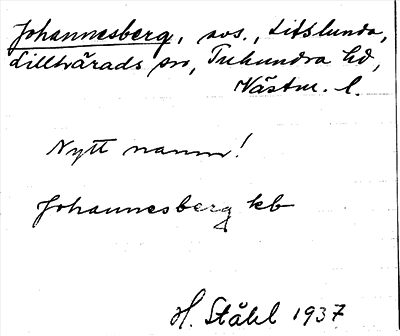 Johannesberg, avs., Litslunda,
Lillhärads sn, Tuhundra hd,
Västm. l.
Nytt namn!
Johannesberg kb
H. Ståhl 1937